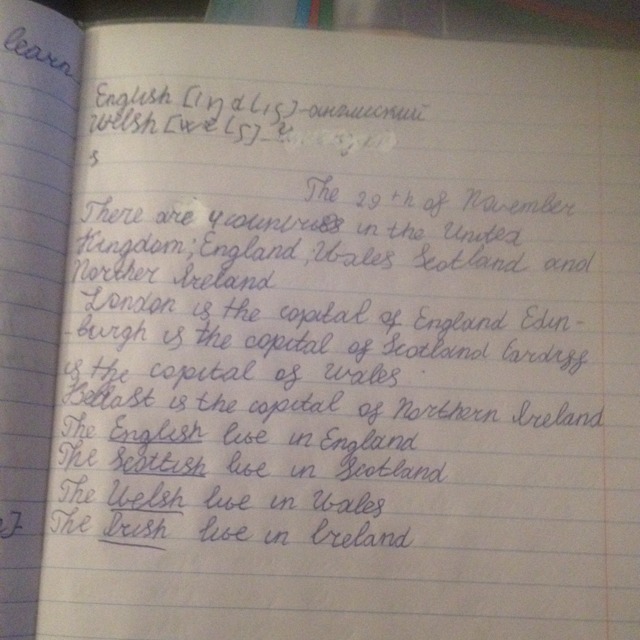 learn
English [iŋgliʃ]-английский
Welsh [welʃ]-
s
The 29th of November
There are 4 countries in the United
Kingdom; England, Wales Scotland and
Norther Ireland
London is the capital of England Edin-
-burgh is the capital of Scotland Cardiff
is the capital of Wales.
Belfast is the capital of Northern Ireland
The English live in England
The Scottish live in Scotland
The Welsh live in Wales
The Irish live in Ireland